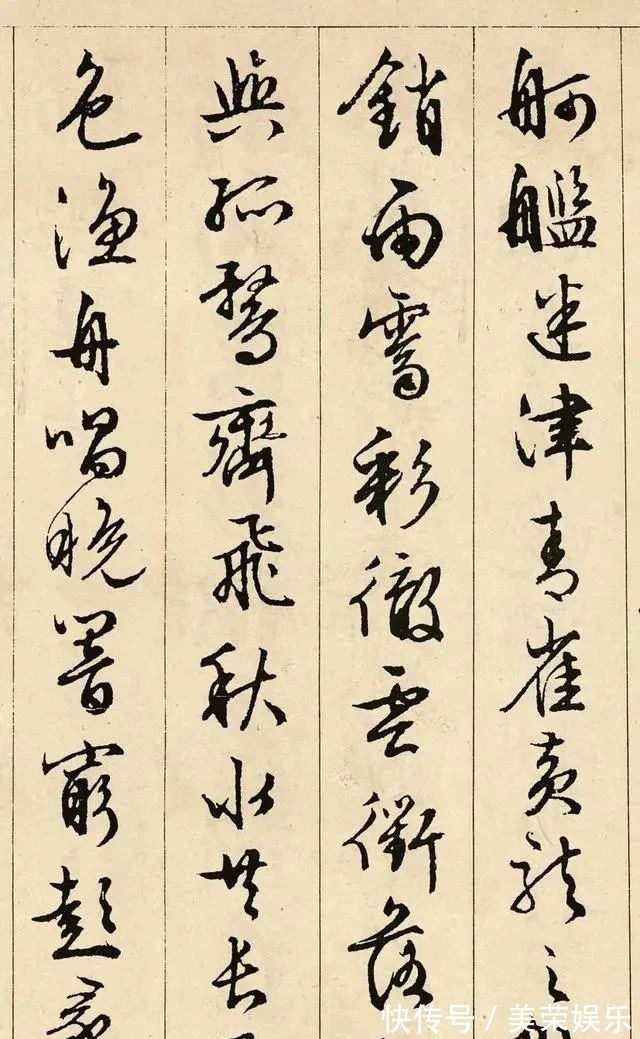 舸艦迷津青雀黄龍之
銷雨霽彩徹雲衢落
與孤鶩齊飛秋水共長
色漁舟唱晚響窮彭
快传号 / 美荣娱乐